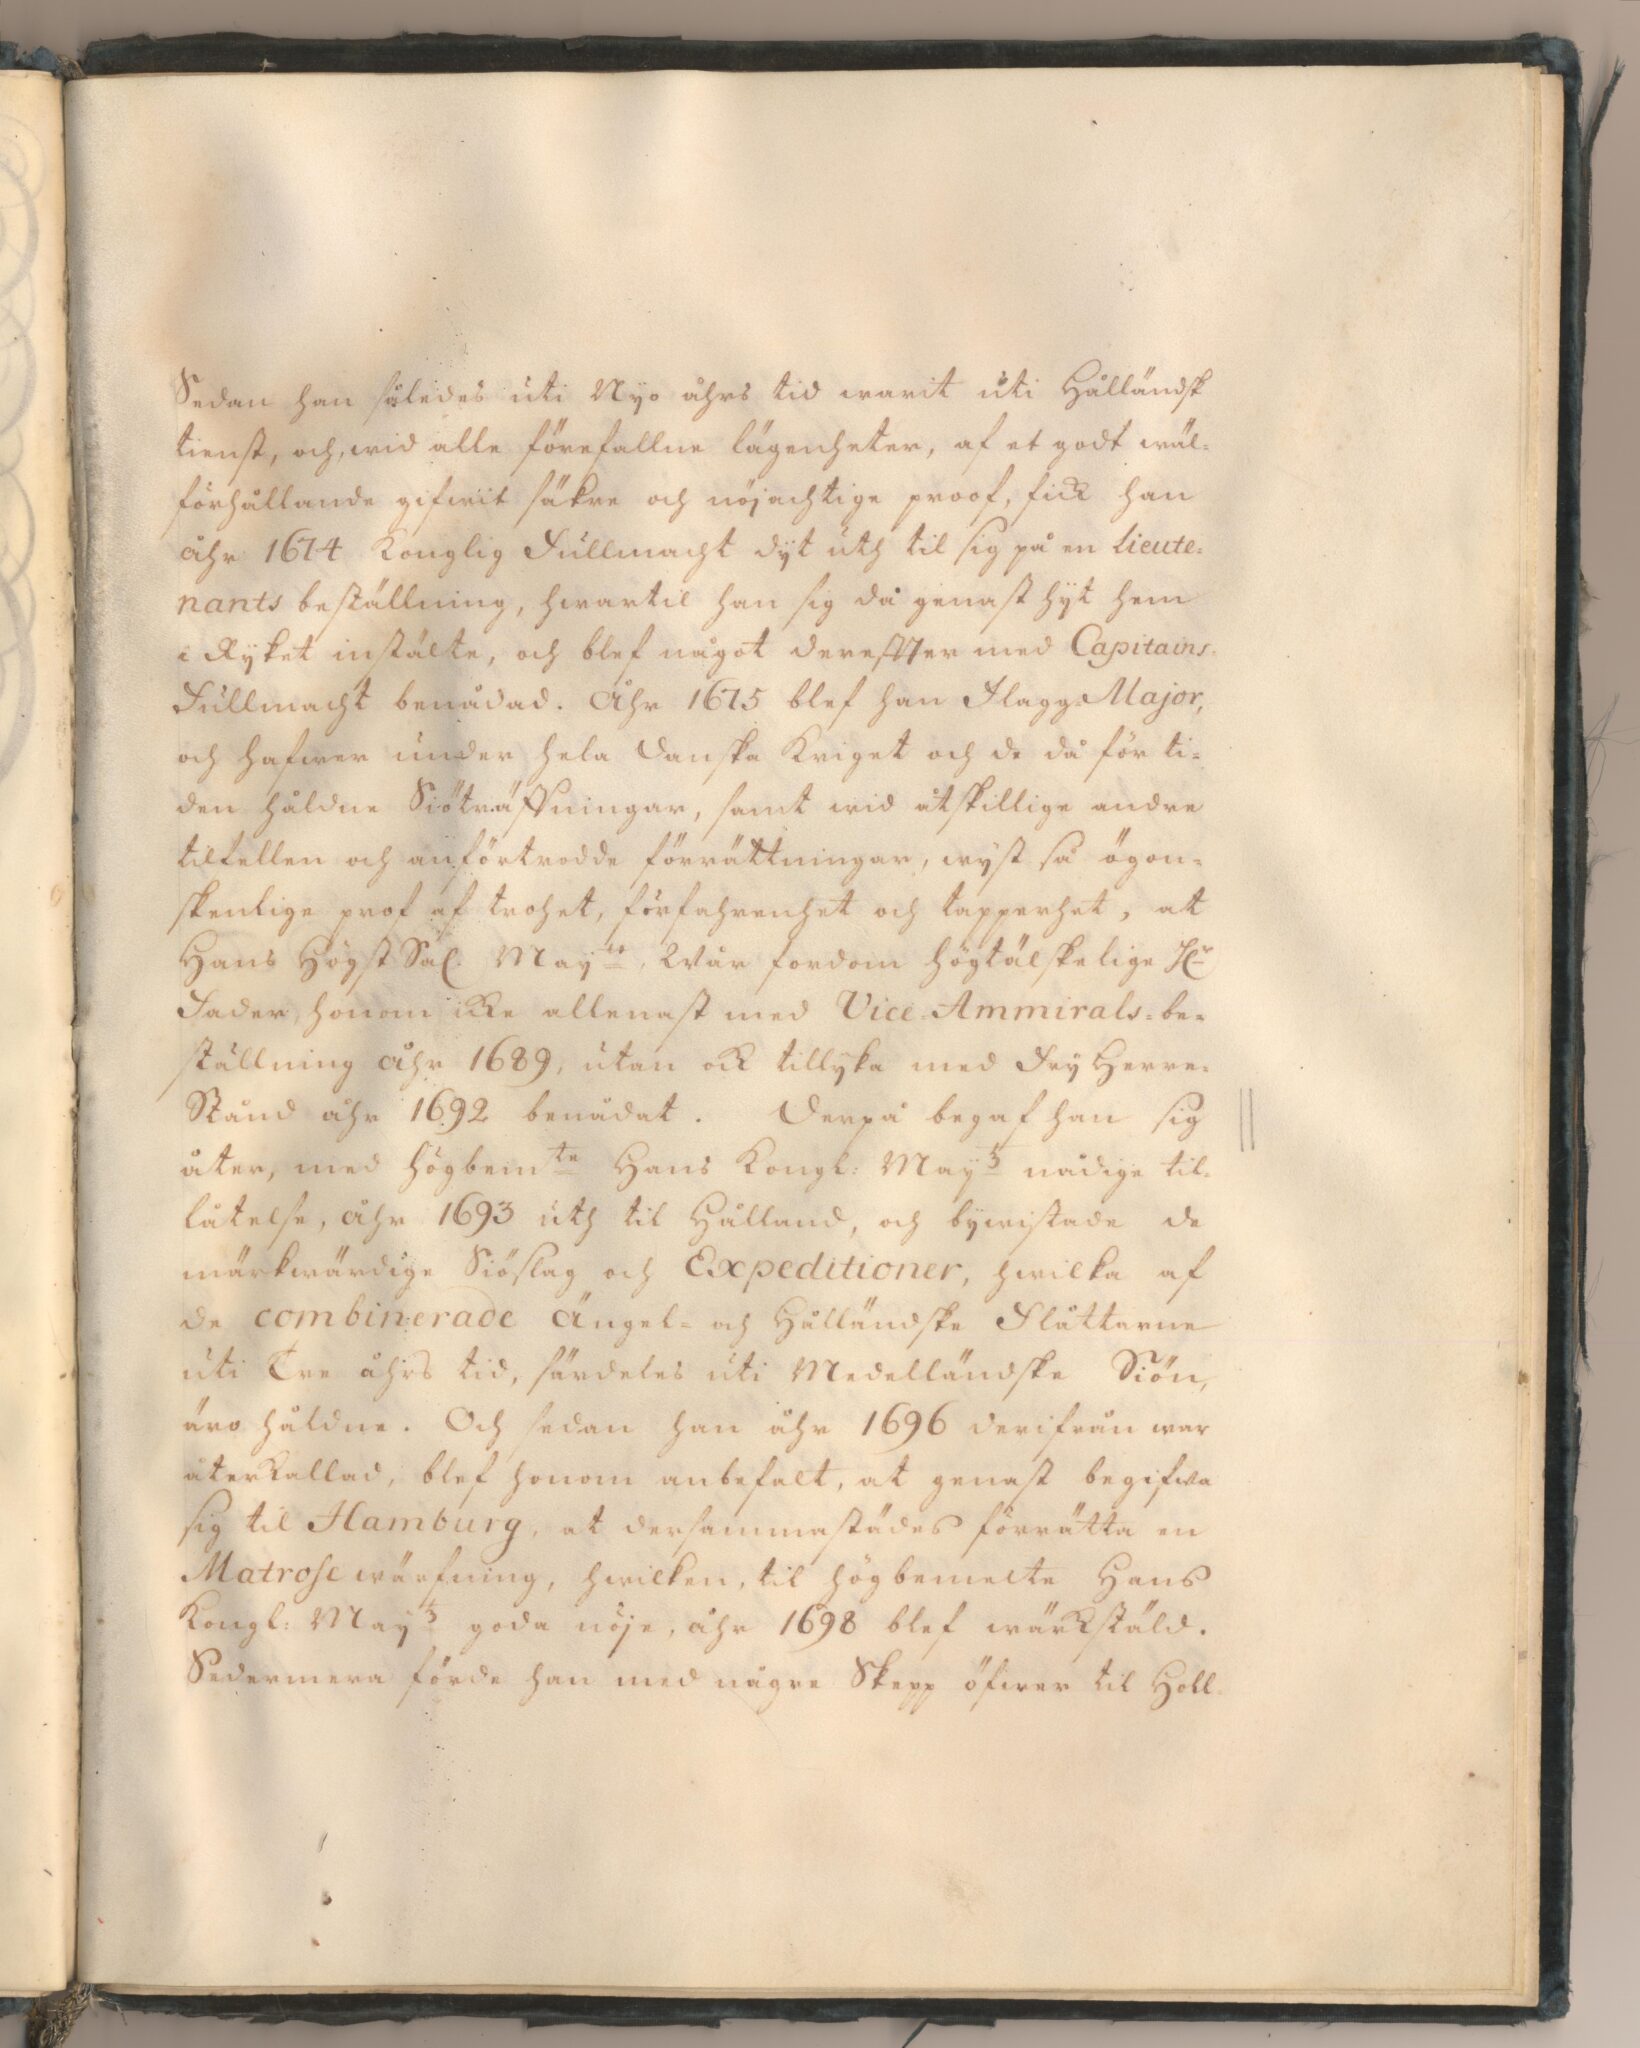 Sedan han således uti Nyo åhrs tid warit uti Hålländsk
tienst, och, wid alle förefallne lägenheter, af et godt wäl-
förhållande gifwit säkre och nöjachtige proof, fick han
åhr 1674 Konglig Fullmacht dyt uth til sig på en Lieute-
nants beställning, hwartil han sig då genast hyt hem
i Ryket instälte, och blef något dereffter med Capitains
Fullmacht benådad. Åhr 1675 blef han Flagg-Major,
och hafwer under hela Danska Kriget och de då för ti-
den håldne Siöträffningar, samt wid åtskillige andre
tilfellen och anförtrodde förrättningar, wyst så ögon-
skenlige prof af trohet, förfahrenhet och tapperhet, at
Hans Högst Sal. Maytt, Wår fordom högtälskelige Hr
Fader, honom icke allenast med Vice-Ammirals-be-
ställning åhr 1689, utan ock tillyka med FryHerre-
Stånd åhr 1692 benådat. Derpå begaf han sig
åter, med högbemte Hans Kongl: Mayts nådige til-
låtelse, åhr 1693 uth til Hålland, och bywistade de
märkwärdige Siöslag och Expeditioner, hwilka af
de combinerade Ängel- och Hålländske Flåttarne
uti Tre åhrs tid, särdeles uti Medelländske Siön,
äro håldne. Och sedan han åhr 1696 derifrån war
återkallad, blef honom anbefalt, at genast begifwa
sig til Hamburg, at dersammastädes förrätta en
Matrose wärfning, hwilken, til högbemelte Hans
Kongl: Mayts goda nöje, åhr 1698 blef wärckstäld.
Sedermera förde han med någre Skepp öfwer til Holl-